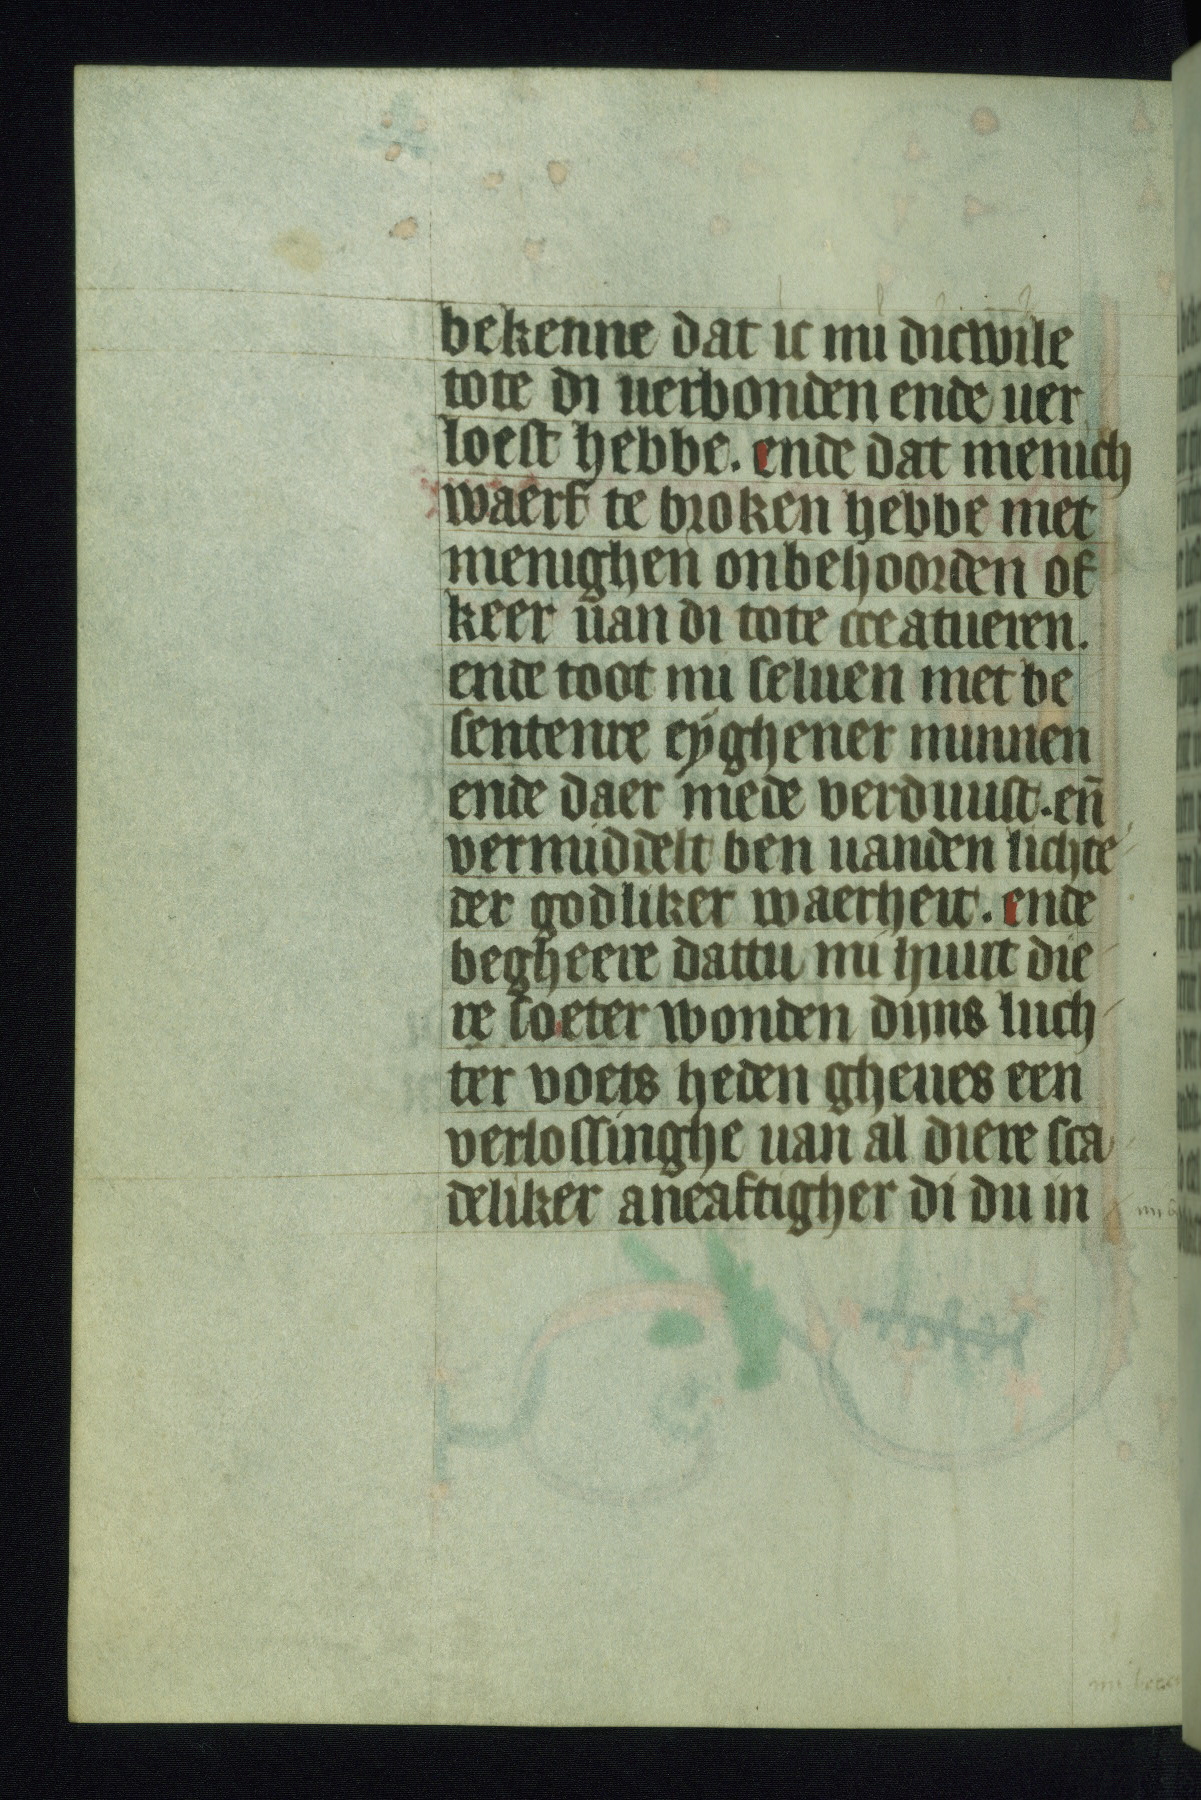 bekenne dat ic mi dicwile
tote di uerbonden ende uer
loest hebbe. ende dat menich
waerf te broken hebbe met
menighen onbehoorden of
keer uan di tote creatueren.
ende toot mi seluen met be
sentenre eÿghener minnen
ende daer mede verduust. en̄
vermiddelt ben uanden lichte
der godliker waerheit. ende
begheere dattu mi huut die
re soeter wonden dijns luch
ter voets heden gheues een
verlossinghe uan al diere sca
deliker aneaftigher di du in